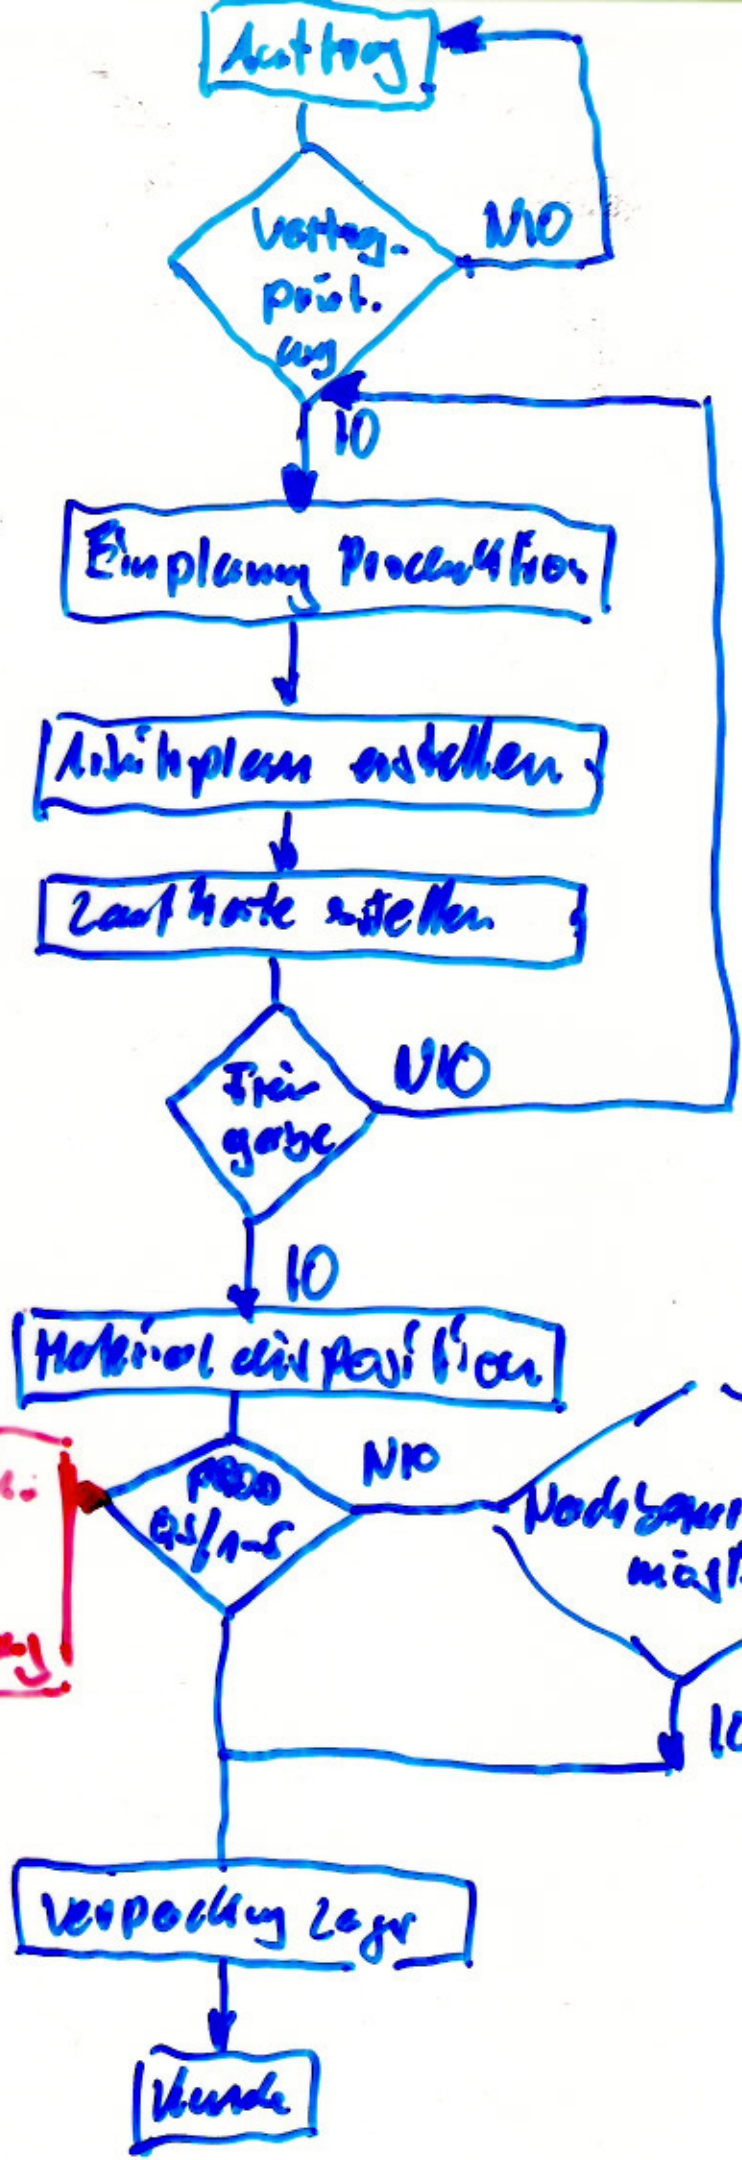 Auftrag
NIO
Vertrag-
prüf.
ung
IO
Einplanung Produktion
Arbeitsplan erstellen
Laufkarte erstellen
Frei
gabe
NIO
IO
Materialdisposition
NIO
PROD
QS/1-5
IO
Verpackung Lager
Kunde